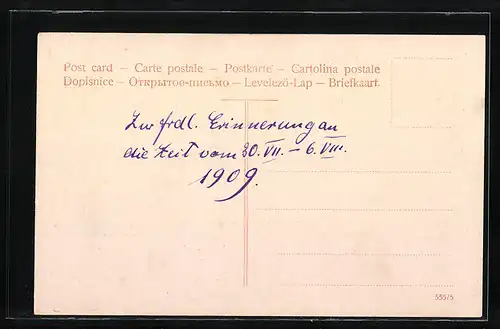 Post card – Carte postale – Postkarte – Cartolina postale
Dopisnice – Открытое-письмо – Levelező-Lap – Briefkaart.
Zur frdl. Erinnerung an
die Zeit vom 30. VII. – 6. VIII.
1909.
555/5